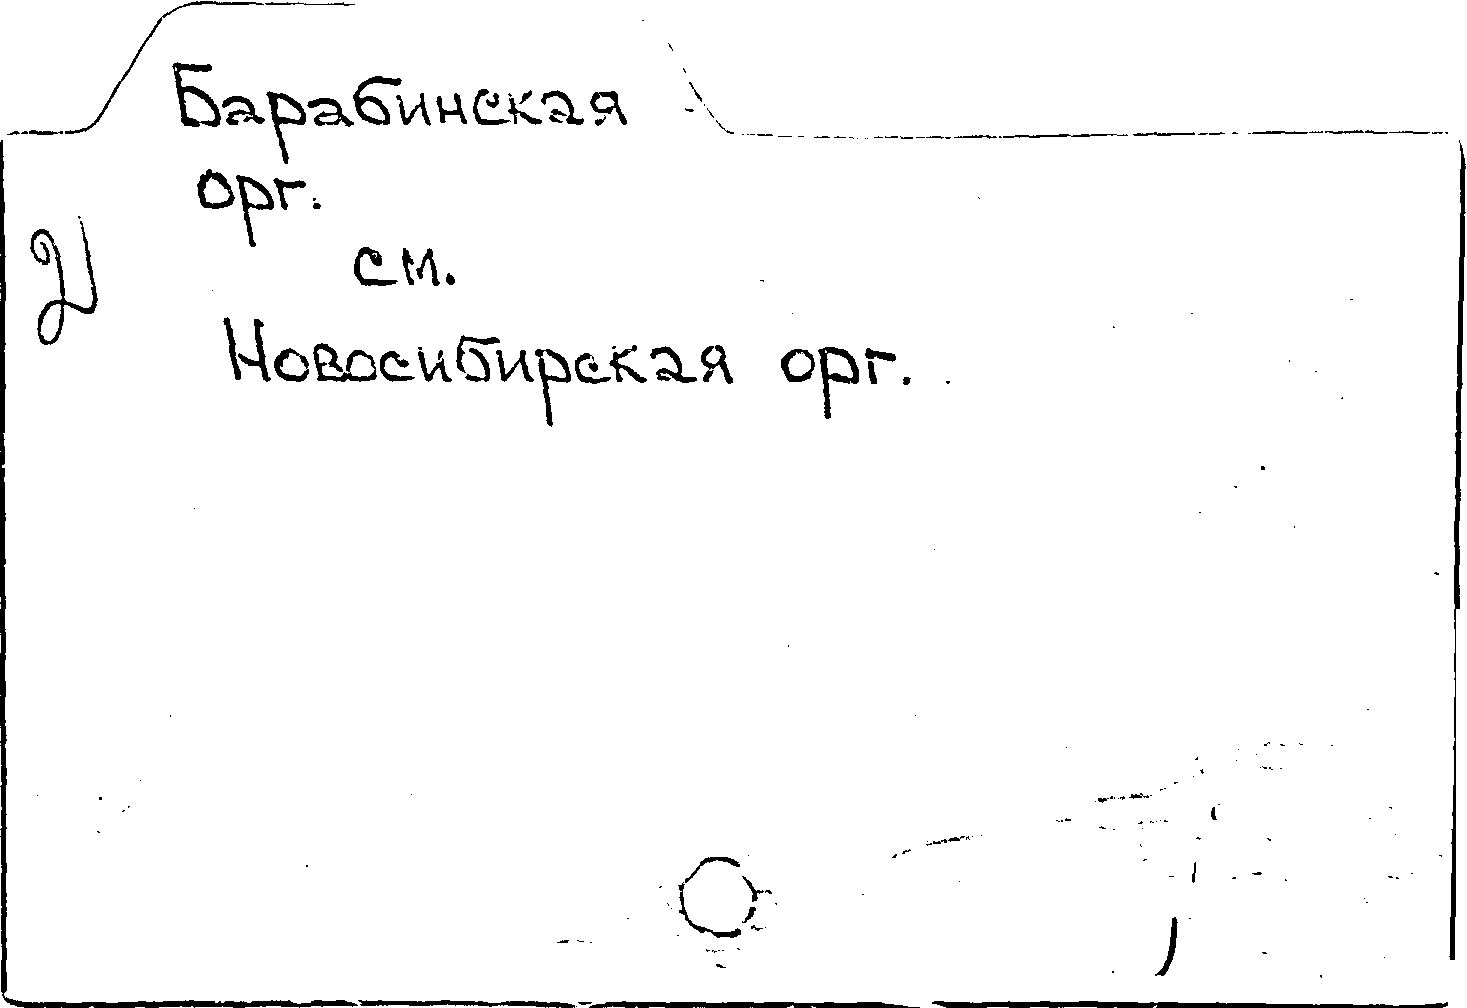 Барабинская
орг.
см.
Новосибирская орг.